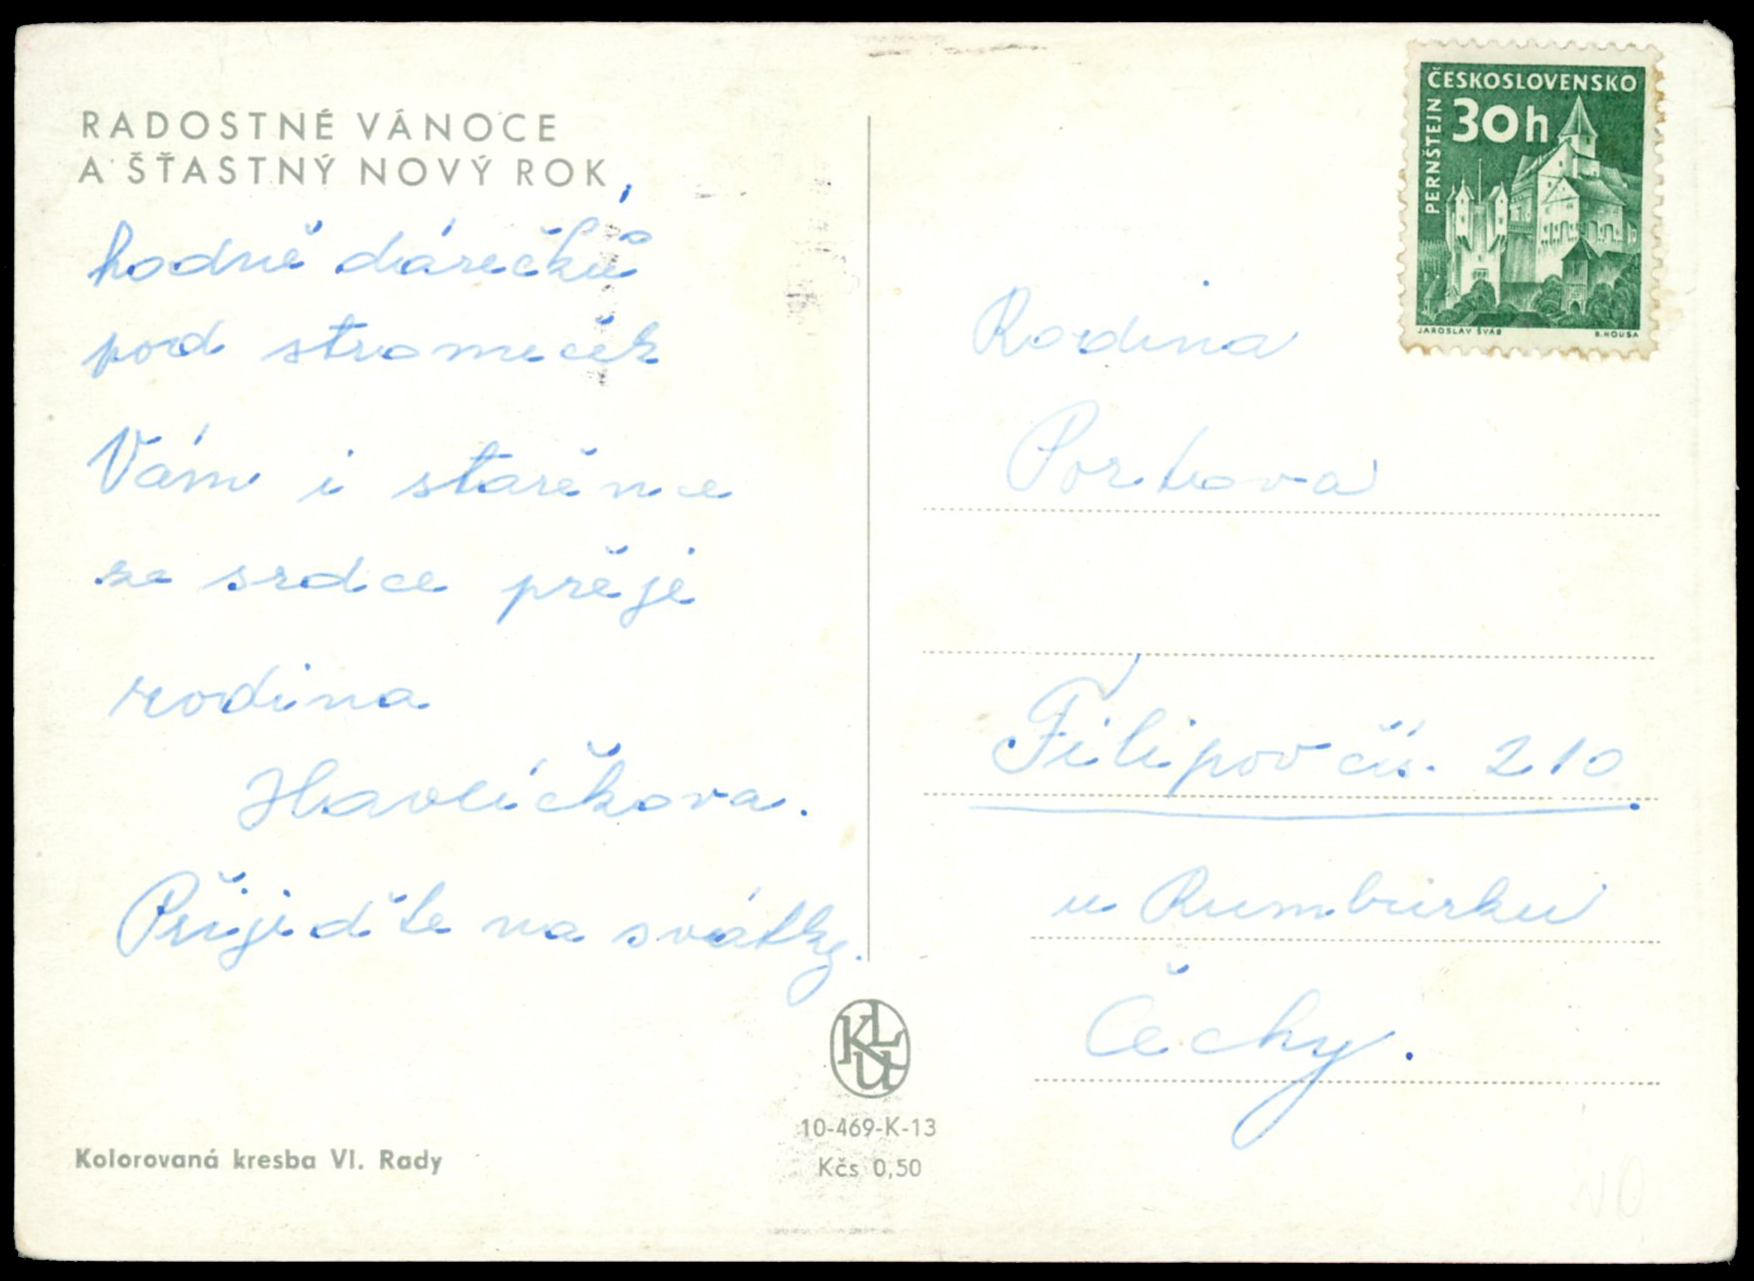 RADOSTNÉ VÁNOCE
A ŠŤASTNÝ NOVÝ ROK,
hodně dárečků
pod stromeček
Vám i stařence
ze srdce přeje
rodina
Havlíčkova.
Přijeďte na svátky.
Kolorovaná kresba Vl. Rady
KLU
10-469-K-13
Kčs 0,50
ČESKOSLOVENSKO
30h
PERNŠTEJN
JAROSLAV ŠVÁB
B. HOUSA
Rodina
Filipov čís. 210
u Rumburku
Čechy.